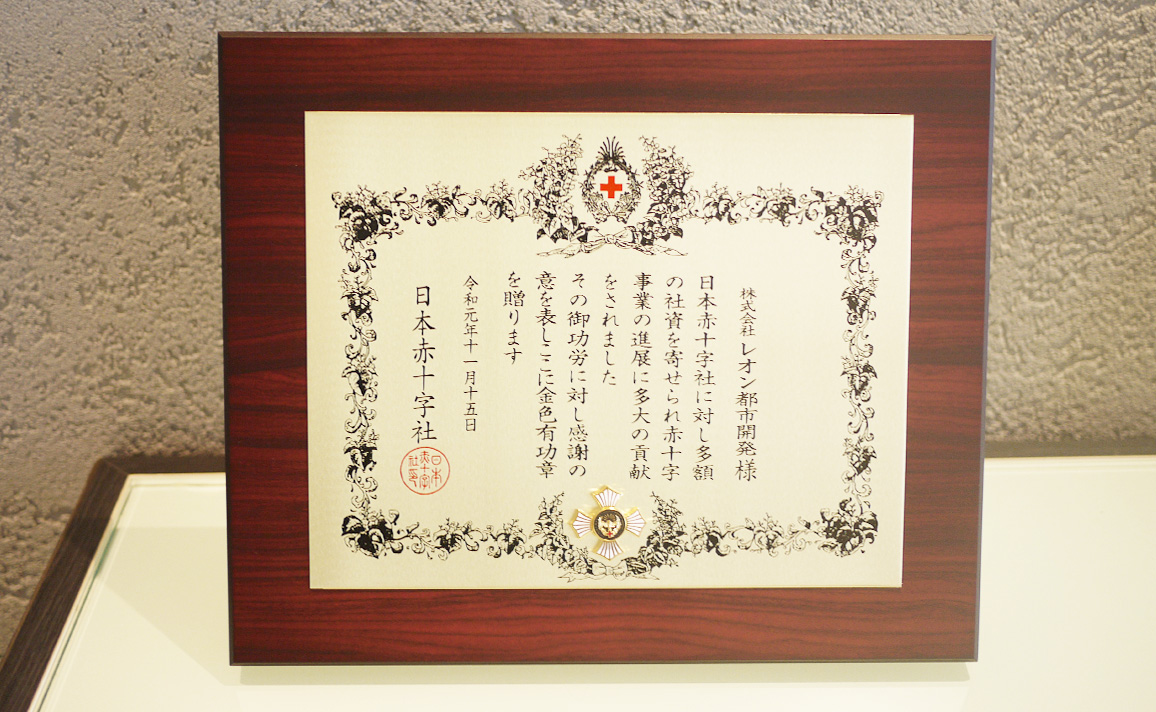 株式会社 レオン都市開発 様
日本赤十字社に対し多額
の社資を寄せられ赤十字
事業の進展に多大の貢献
をされました
その御功労に対し感謝の
意を表しここに金色有功章
を贈ります
令和元年十一月十五日
日本赤十字社
日本
赤十字
社印